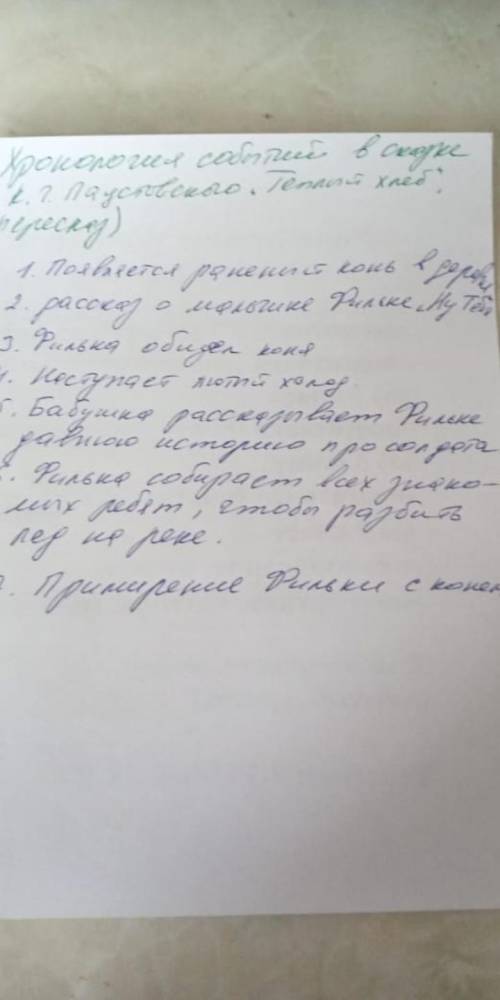 Хронология событий в сказке
К. Г. Паустовского "Теплый хлеб",
пересказ)
1. Появляется раненый конь в дерев
2. рассказ о мальчике Фильке "Ну Теб
3. Филька обидел коня
4. Наступает лютый холод
5. Бабушка рассказывает Фильке
давнюю историю про солдата
6. Филька собирает всех знако-
мых ребят, чтобы разбить
лед на реке.
7. Примирение Фильки с конем